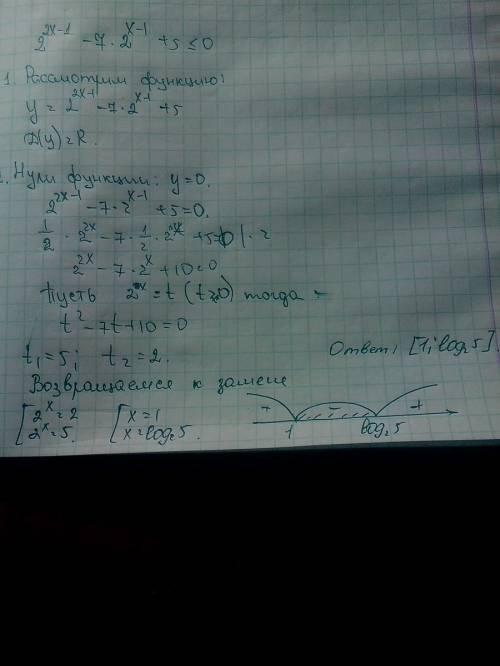 2^{2x-1} - 7 · 2^{x-1} + 5 ≤ 0
1. Рассмотрим функцию:
y = 2^{2x-1} - 7 · 2^{x-1} + 5
D(y) = R.
Нули функции: y = 0.
2^{2x-1} - 7 · 2^{x-1} + 5 = 0.
1/2 · 2^{2x} - 7 · 1/2 · 2^x + 5 = 0 | · 2
2^{2x} - 7 · 2^x + 10 = 0
Пусть 2^x = t (t > 0) тогда
t² - 7t + 10 = 0
t₁ = 5; t₂ = 2.
Ответ: [1; log₂5].
Возвращаемся к замене
[2^x = 2 [x = 1
2^x = 5. x = log₂5.
+ - +
1 log₂5